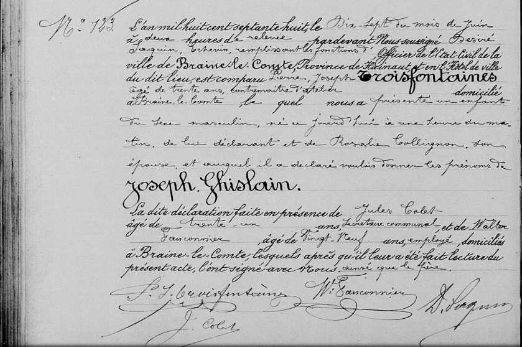 N° 123
L'an mil huit cent septante huit, le Dix Sept du mois de Juin
à deux heures de relevée pardevant Nous soussigné Désiré
échevin, remplissant les fonctions d'Officier de l'Etat civil de la
ville de Braine-le-Comte, Province de Hainaut et en l'Hôtel de ville
du dit lieu, est comparu Pierre, Joseph Troisfontaines
âgé de trente ans, contremaître d'atelier domicilié
à Braine-le-Comte le quel nous a présenté un enfant
du sexe masculin, né ce jourd'hui à une heure du ma-
tin, de lui déclarant et de Rosalie Collignon, son
épouse, et auquel il a déclaré vouloir donner les prénoms de
Joseph, Ghislain.
La dite déclaration faite en présence de Jules Colet
âgé de trente-un ans, Secrétaire communal, et de Walter
Fauconnier âgé de Vingt Neuf ans, employé, domiciliés
à Braine-le-Comte, lesquels après qu'il leur a été fait lecture du
présent acte, l'ont signé avec Nous, ainsi que le père
P. J. Troisfontaines W. Fauconnier
J. Colet